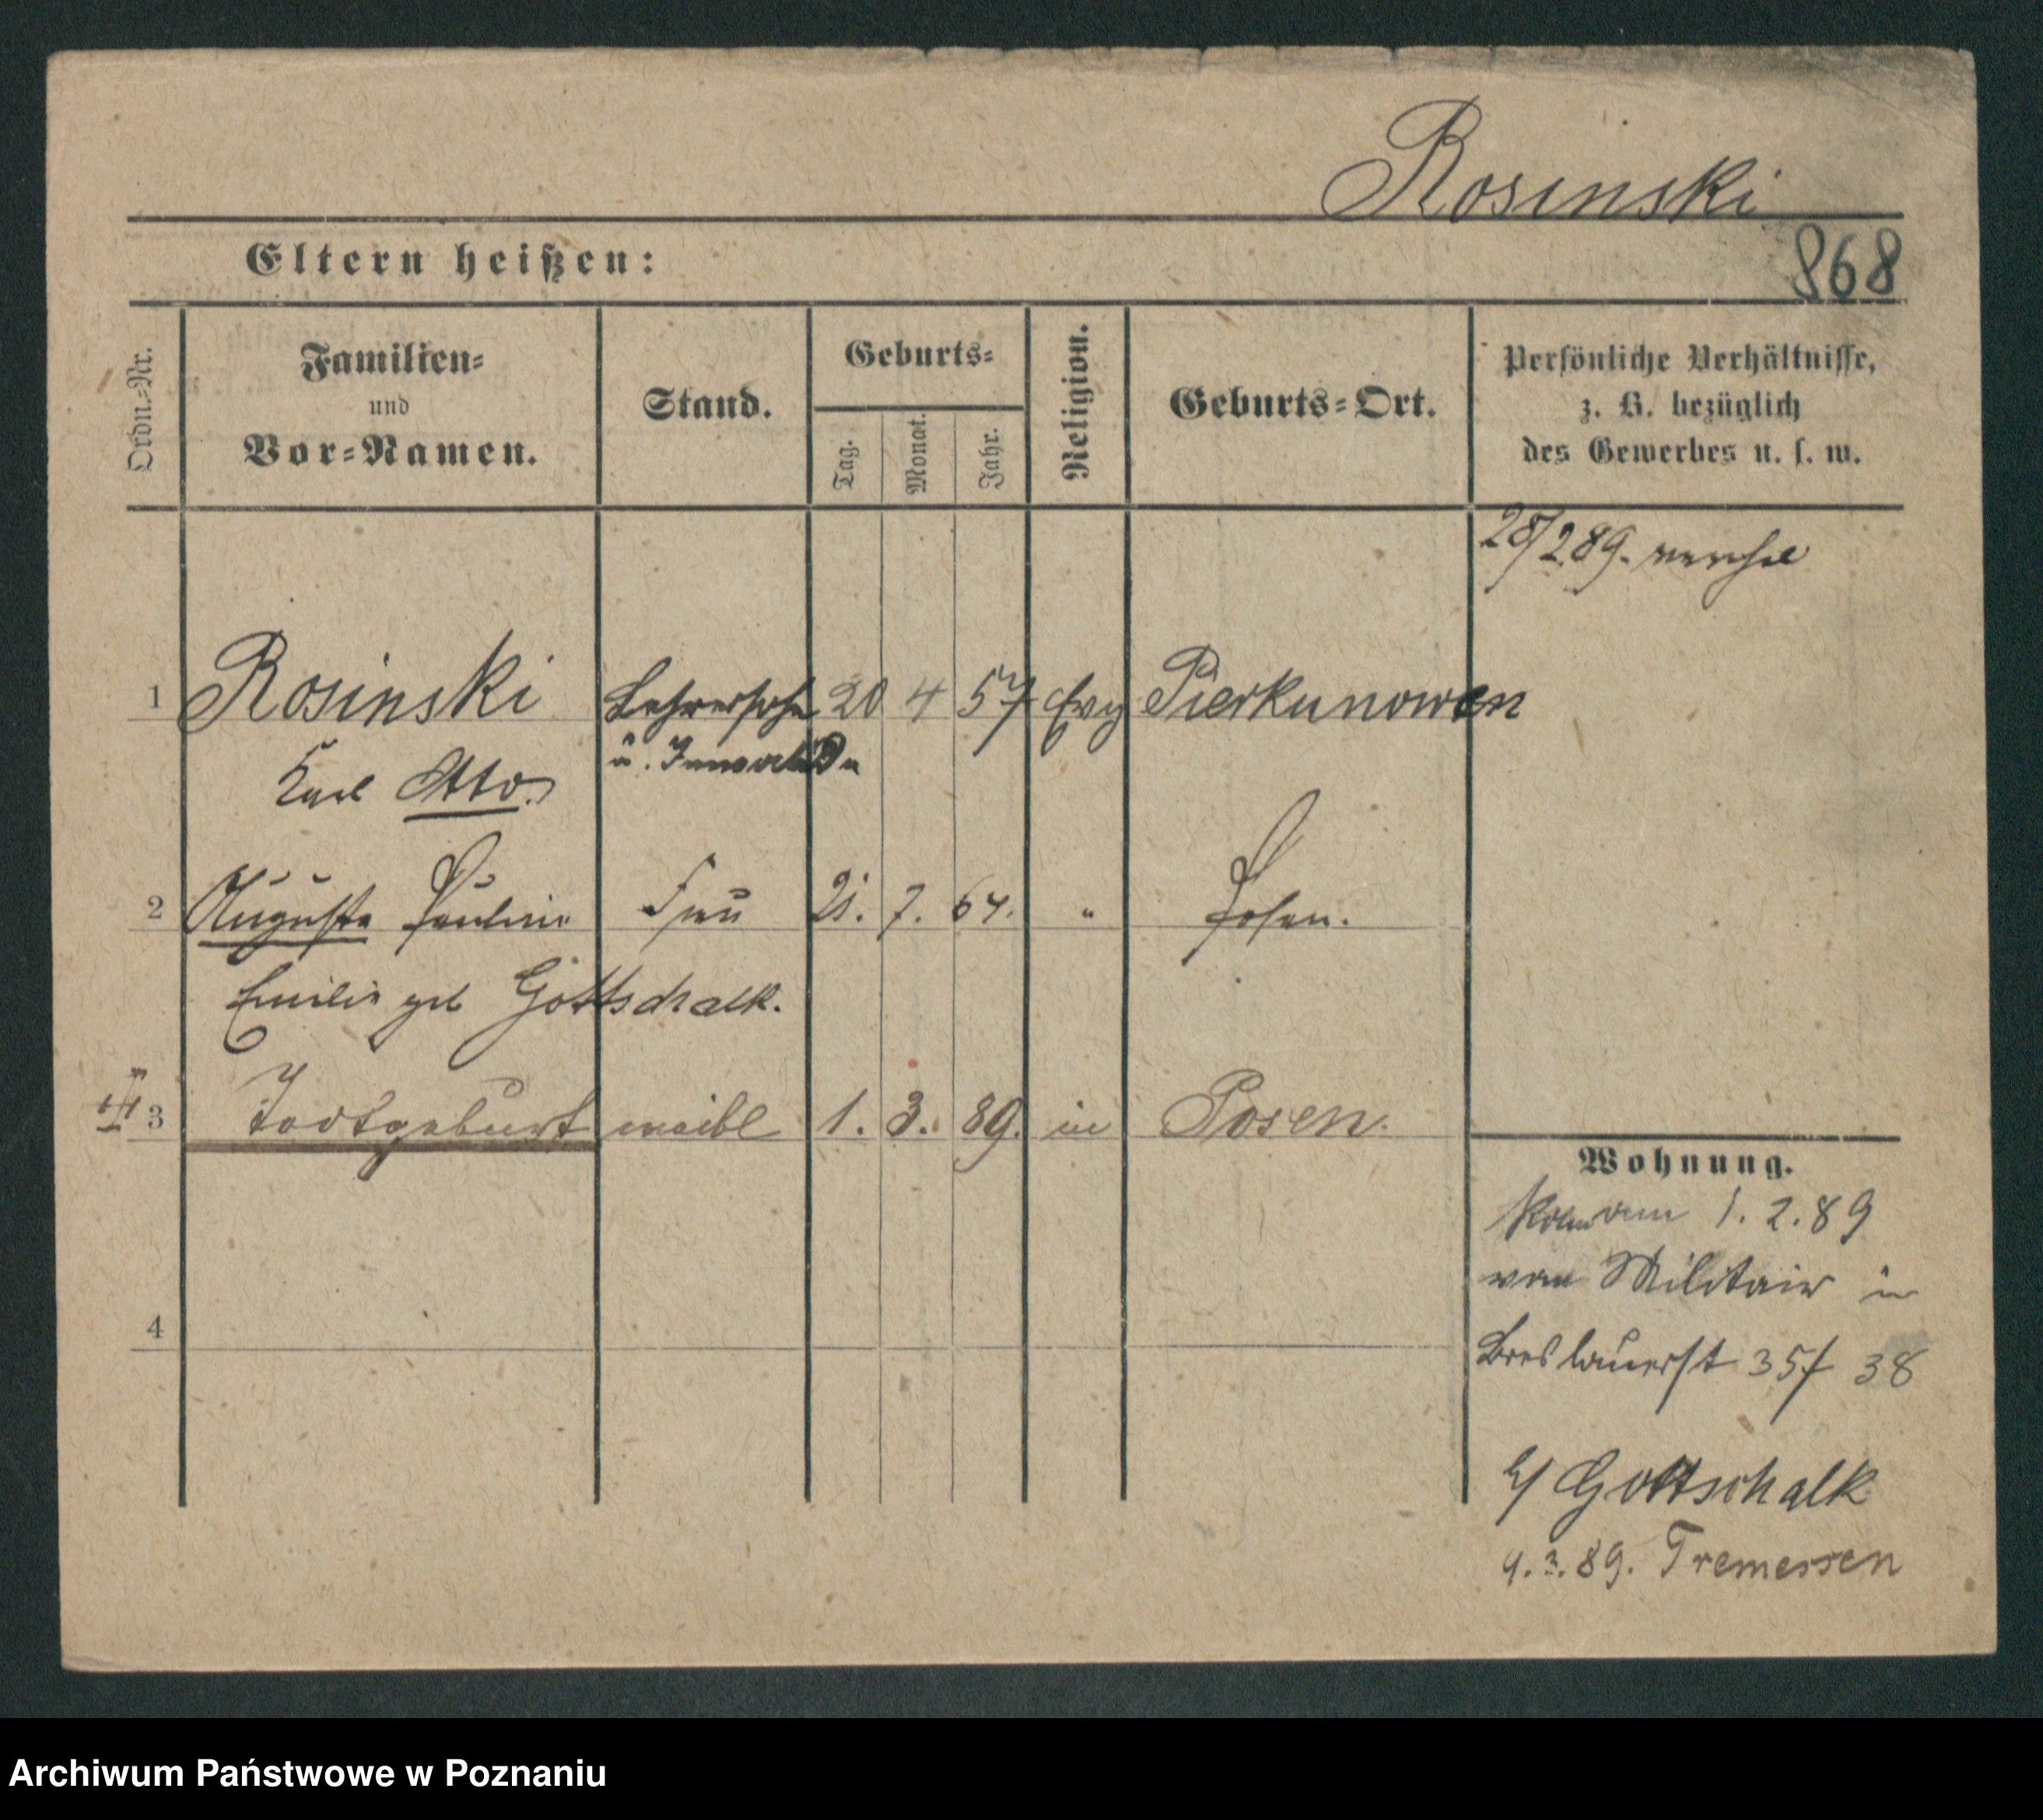 Rosinski
868
Eltern heißen:
Ordn.-Nr.
Familien-
und
Vor-Namen.
Stand.
Geburts-
Tag.
Monat.
Jahr.
Religion.
Geburts-Ort.
Persönliche Verhältnisse,
z. B. bezüglich
des Gewerbes u. s. w.
28/2 89.
1 Rosinski 20 4 57 Evg Pierkunowen
Karl Otto.
u. Invalide
2 Auguste Pauline Frau 21. 7. 64. " Posen.
Emilie geb Gottschalk.
3 Todtgeburt weibl 1. 3. 89. in Posen.
4
Wohnung.
1. 2. 89
vom Militair in
Breslauerst 35/ 38
b/ Gottschalk
9. 3. 89. Tremessen
Archiwum Państwowe w Poznaniu